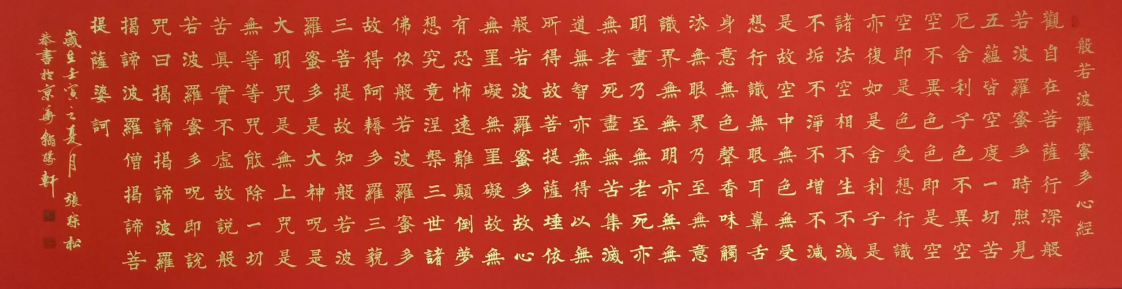 般若波羅蜜多心經
觀自在菩薩行深般
若波羅蜜多時照見
五蘊皆空度一切苦
厄舍利子色不異空
空不異色色即是空
空即是色受想行識
亦復如是舍利子是
諸法空相不生不滅
不垢不淨不增不減
是故空中無色無受
想行識無眼耳鼻舌
身意無色聲香味觸
法無眼界乃至無意
識界無無明亦無無
明盡乃至無老死亦
無老死盡無苦集滅
道無智亦無得以無
所得故菩提薩埵依
般若波羅蜜多故心
無罣礙無罣礙故無
有恐怖遠離顛倒夢
想究竟涅槃三世諸
佛依般若波羅蜜多
故得阿耨多羅三藐
三菩提故知般若波
羅蜜多是大神呪是
大明咒是無上咒是
無等等咒能除一切
苦真實不虛故說般
若波羅蜜多呪即說
咒曰揭諦揭諦波羅
揭諦波羅僧揭諦菩
提薩婆訶
歲在壬寅之夏月 張松
恭書於京華軒